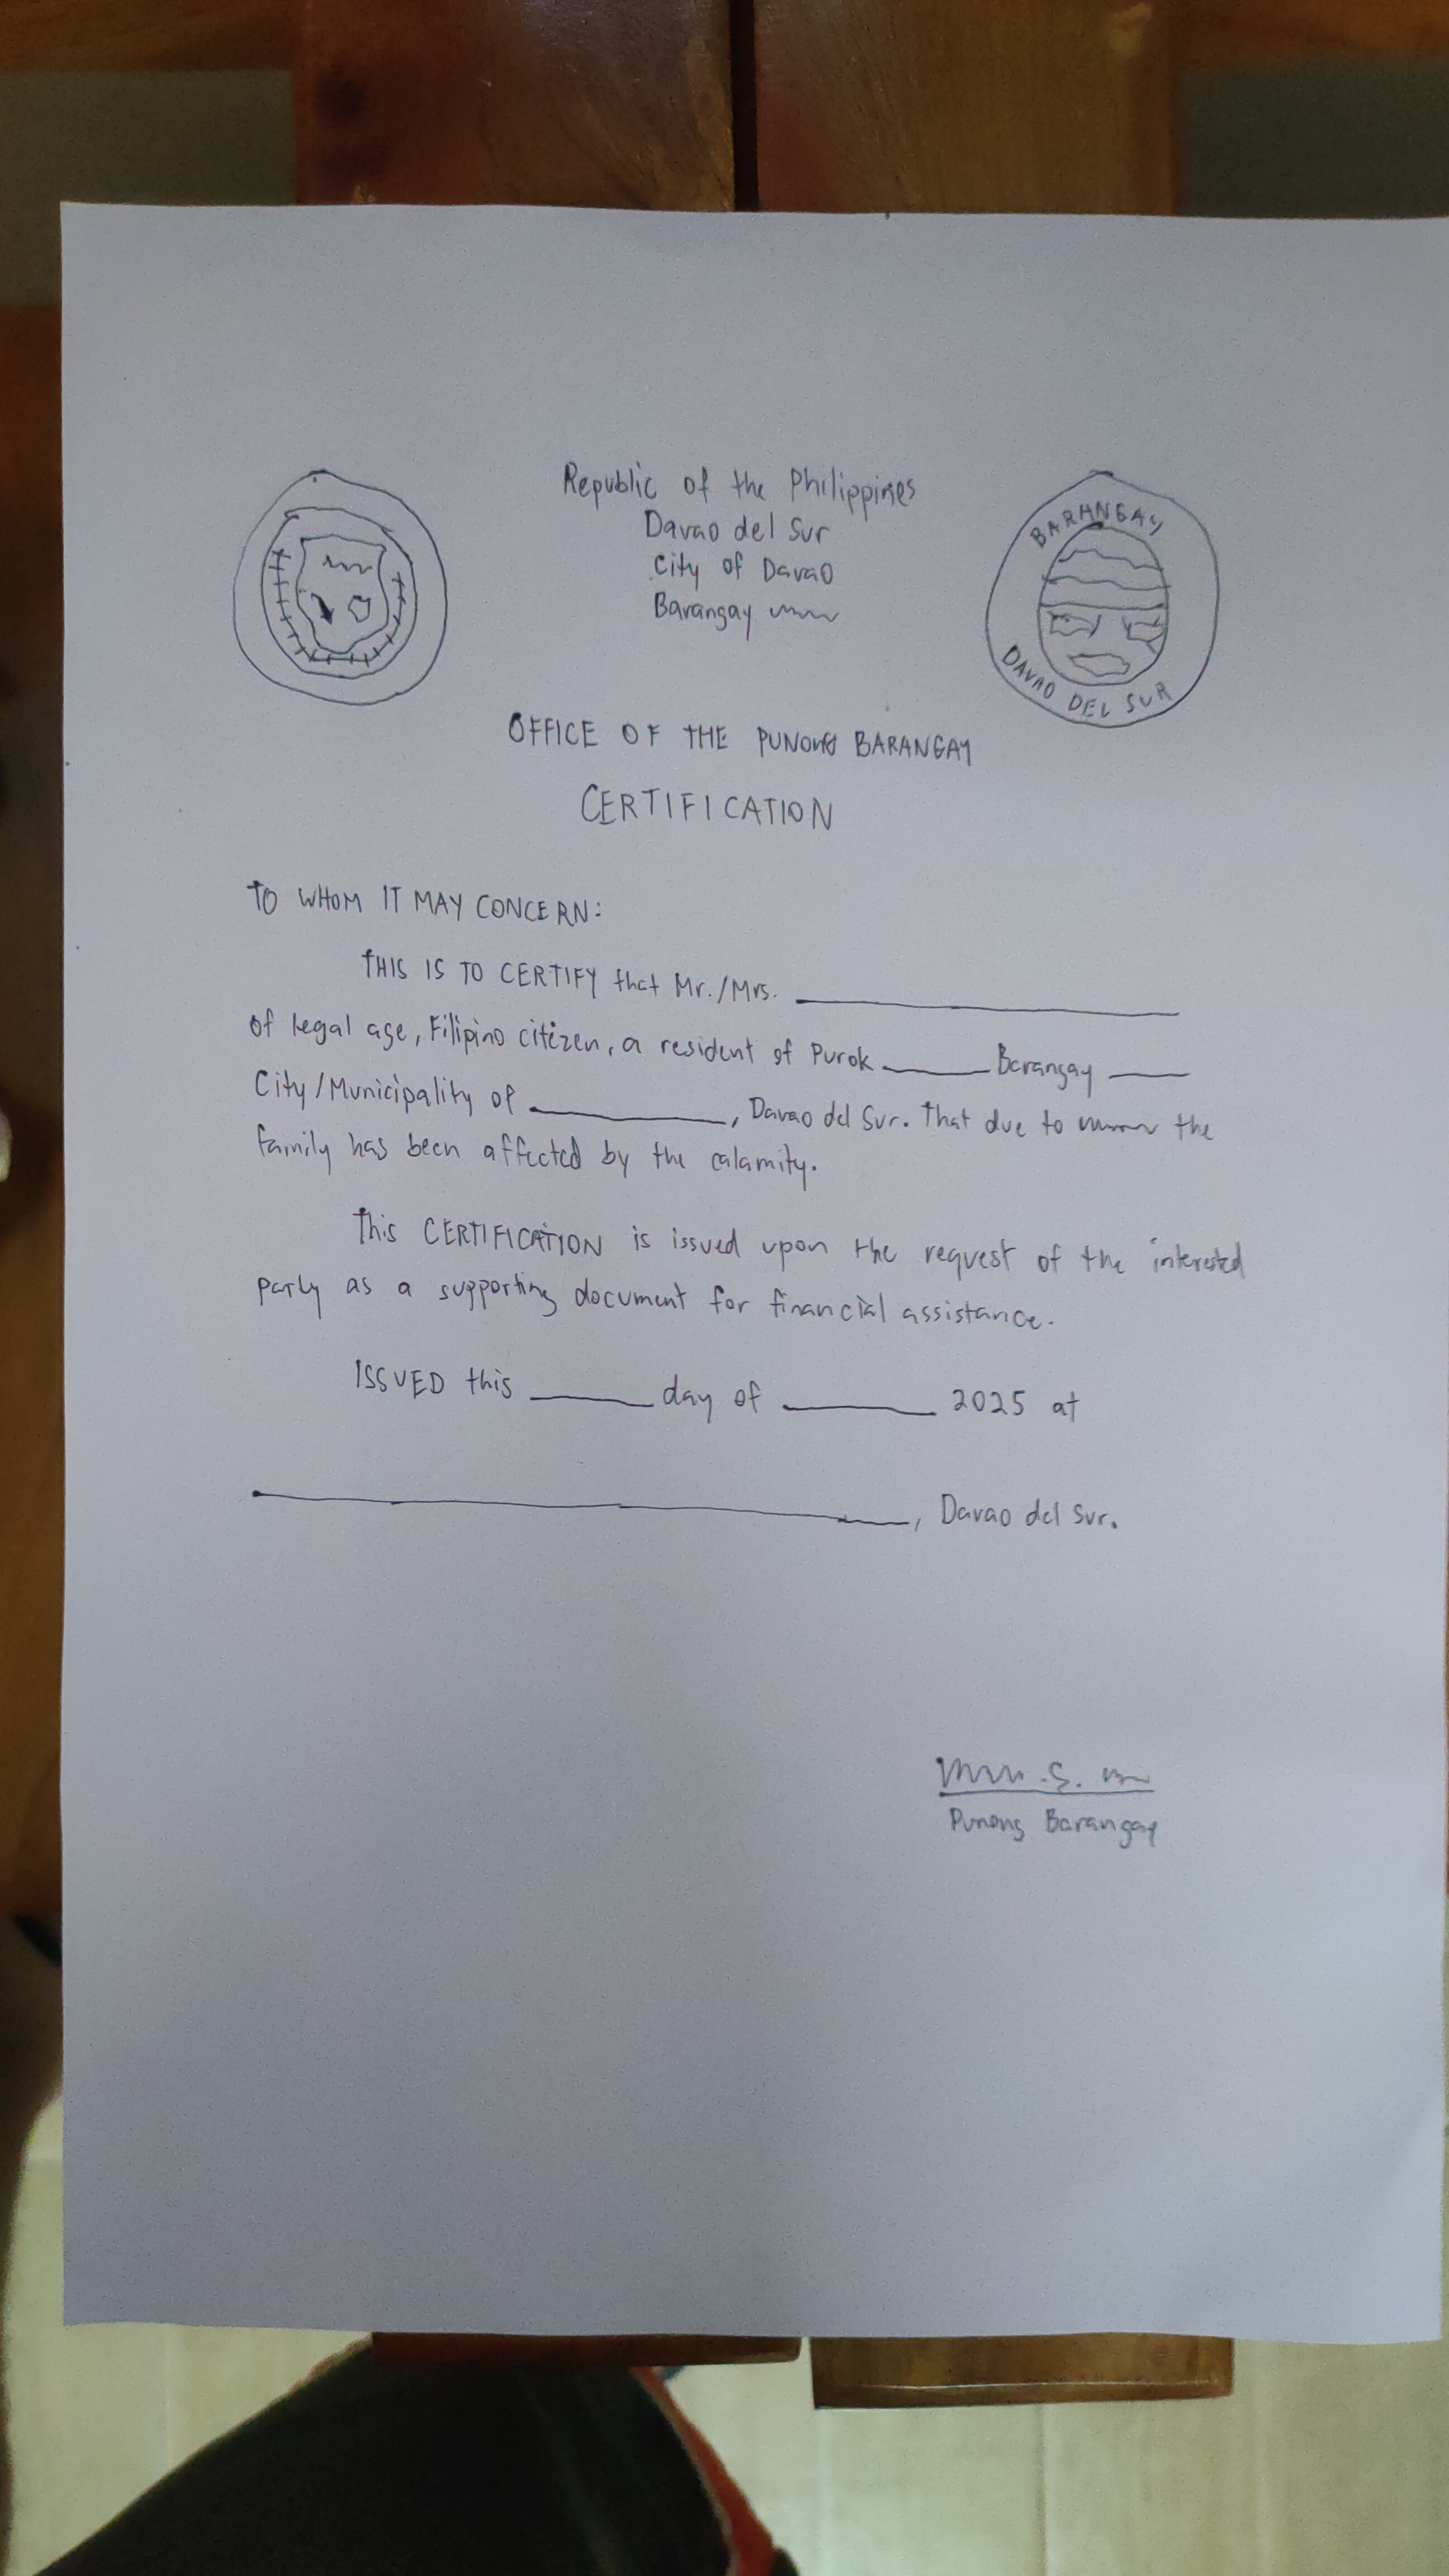 Republic of the Philippines
Davao del Sur
City of Davao
Barangay
BARANGAY
DAVAO DEL SUR
OFFICE OF THE PUNONG BARANGAY
CERTIFICATION
TO WHOM IT MAY CONCERN:
THIS IS TO CERTIFY that Mr./Mrs. ____________
of legal age, Filipino citizen, a resident of Purok ______ Barangay ____
City/Municipality of __________, Davao del Sur. That due to the
family has been affected by the calamity.
This CERTIFICATION is issued upon the request of the interested
party as a supporting document for financial assistance.
ISSUED this ______ day of _______ 2025 at
____________________, Davao del Sur.
S.
Punong Barangay